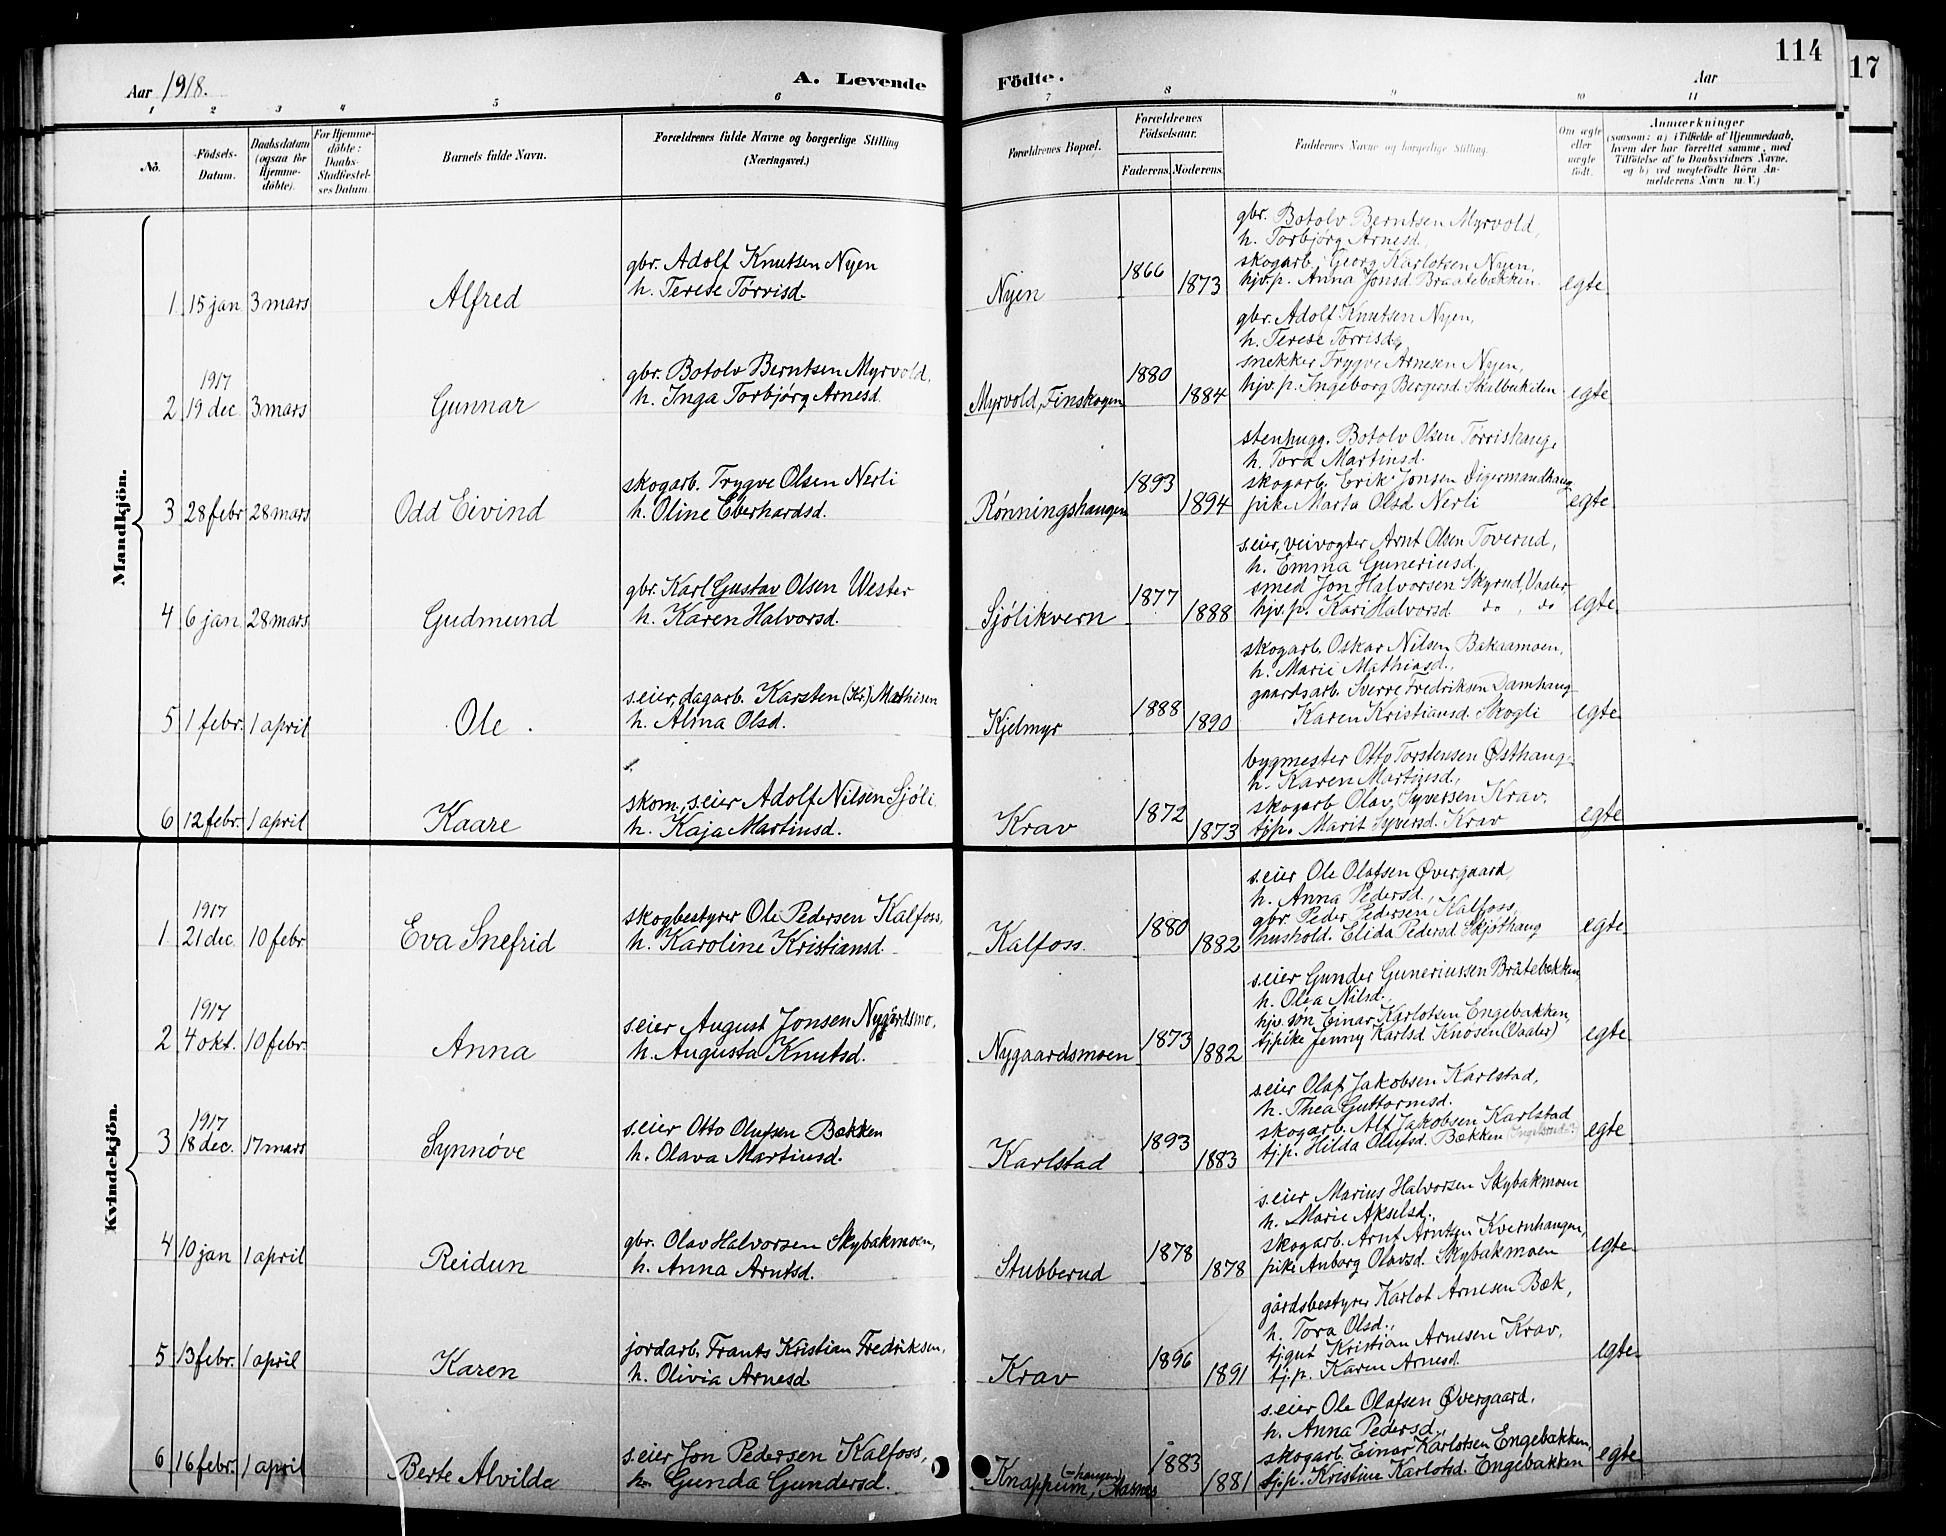 114
17
Aar 1918.
A. Levende Födte.
Aar
1 2 3 4 5 6 7 8 9 10 11
No.
Födsels-Datum.
Daabsdatum (ogsaa for Hjemmedöbte).
For Hjemmedöbte: Daabs-Stadfestelses Datum.
Barnets fulde Navn.
Forældrenes fulde Navne og borgerlige Stilling (Næringsvei.)
Forældrenes Bopæl.
Forældrenes Födselsaar.
Faderens. Moderens.
Faddernes Navne og borgerlige Stilling.
Om ægte eller uægte födt.
Anmærkninger
(saasom: a) i Tilfælde af Hjemmedaab, hvem der har forrettet samme, med Tilföielse af to Daabsvidners Navne, og b) ved uegtefödte Börn Anmelderens Navn m. V.)
Mandkjön.
gbr. Botolv Berntsen Myrvold,
h. Torbjørg Arnesd.,
gbr. Adolf Knutsen Nyen
1866
skogarb. Georg Karlotsen Nyen,
1 15 jan 3 mars Alfred h. Terese Tørrisd. Nyen 1873 hjv.p. Anna Jonsd. Braatebakken. egte
gbr. Adolf Knutsen Nyen,
h. Terese Tørrisd.,
1917 gbr. Botolv Berntsen Myrvold, 1880 snekker Trygve Arnesen Nyen,
2 19 dec. 3 mars Gunnar h. Inga Torbjørg Arnesd. Myrvold, Finskogen 1884 hjv.p. Ingeborg Bergersd. Skalbukilen egte
stenhugg. Botolv Olsen Tørrishaug,
h. Tora Martinsd.
skogarb. Trygve Olsen Nerli 1893 skogarb. Erik Jonsen Digermandhaug
3 28 febr 28 mars Odd Eivind h. Oline Eberhardsd. Rønningshaugen 1894 pike Marta Olsd. Nerli egte
s.eier, veivogter Arnt Olsen Toverud,
h. Emma Guneriusd,
gbr. Karl Gustav Olsen Wester 1877 smed Jon Halvorsen Skyrud, Vaaler,
4 6 jan 28 mars Gudmund h. Karen Halvorsd. Sjølikvern 1888 hjv.p. Kari Halvorsd do , do egte
skogarb. Oskar Nilsen Bakaamoen,
h. Marie Mathiasd.,
s.eier, dagarb. Karsten (Kr.) Mathisen 1888 gaardsarb. Sverre Fredriksen Damhaug
5 1 febr. 1 april Ole. h. Alma Olsd. Kjelmyr 1890 Karen Kristiansd. Skogli egte
bygmester Otto Torstensen Østhaug
h. Karen Martinsd.,
skom., s.eier Adolf Nilsen Sjøli 1872 skogarb Olav Syversen Krav,
6 12 febr. 1 april Kaare h. Kaja Martinsd. Krav 1873 tjp. Marit Syversd. Krav egte
Kvindekjön.
s.eier Ole Olafsen Øvergaard,
h. Anna Pedersd.,
1917 skogbestyrer Ole Pedersen Kalfoss, 1880 gbr. Peder Pedersen Kalfoss,
1 21 dec. 10 febr Eva Snefrid h. Karoline Kristiansd. Kalfoss. 1882 hushold. Elida Pedersd. Skjøthaug egte
s.eier Gunder Guneriussen Bråtebækken
h. Olea Nilsd.,
1917 s.eier August Jonsen Nygårdsmo, 1873 hjv. søn Einar Karlotsen Engebakken,
2 4 okt. 10 febr. Anna h. Augusta Knutsd. Nygaardsmoen 1882 tjpike Jenny Karlsd. Knosen (Vaaler) egte
s.eier Olaf Jakobsen Karlstad,
h. Thea Guttormsd.
1917 s.eier Otto Olufsen Bækken 1893 skogarb. Alf Jakobsen Karlstad
3 18 dec. 17 mars Synnøve h. Olava Martinsd. Karlstad 1883 tj.p. Hilda Olufsd. Bækken egte
s.eier Marius Halvorsen Skybakmoen
h. Marie Akselsd.,
gbr. Olav Halvorsen Skybakmoen, 1878 skogarb. Arnt Arntsen Kvernhaugen,
4 10 jan 1 april Reidun h. Anna Arntsd. Stubberud 1878 pike Anborg Olavsd. Skybakmoen egte
gårdsbestyrer Karlot Arnesen Bæk,
h. Tora Olsd.,
jordarb. Frants Kristian Fredriksen, 1896 tj.gut Kristian Arnesen Krav,
5 13 febr. 1 april Karen h. Olivia Arnesd Krav 1891 tj.p. Karen Arnesd. egte
s.eier Ole Olafsen Øvergaard,
h. Anna Pedersd.,
s.eier Jon Pedersen Kalfoss, (-haugen) 1883 skogarb. Einar Karlotsen Engebakken,
6 16 febr. 1 april Berte Alvilde h. Gunda Gundersd. Knappum, Aasnes 1881 tj.p. Kristine Karlotsd. Engebakken egte